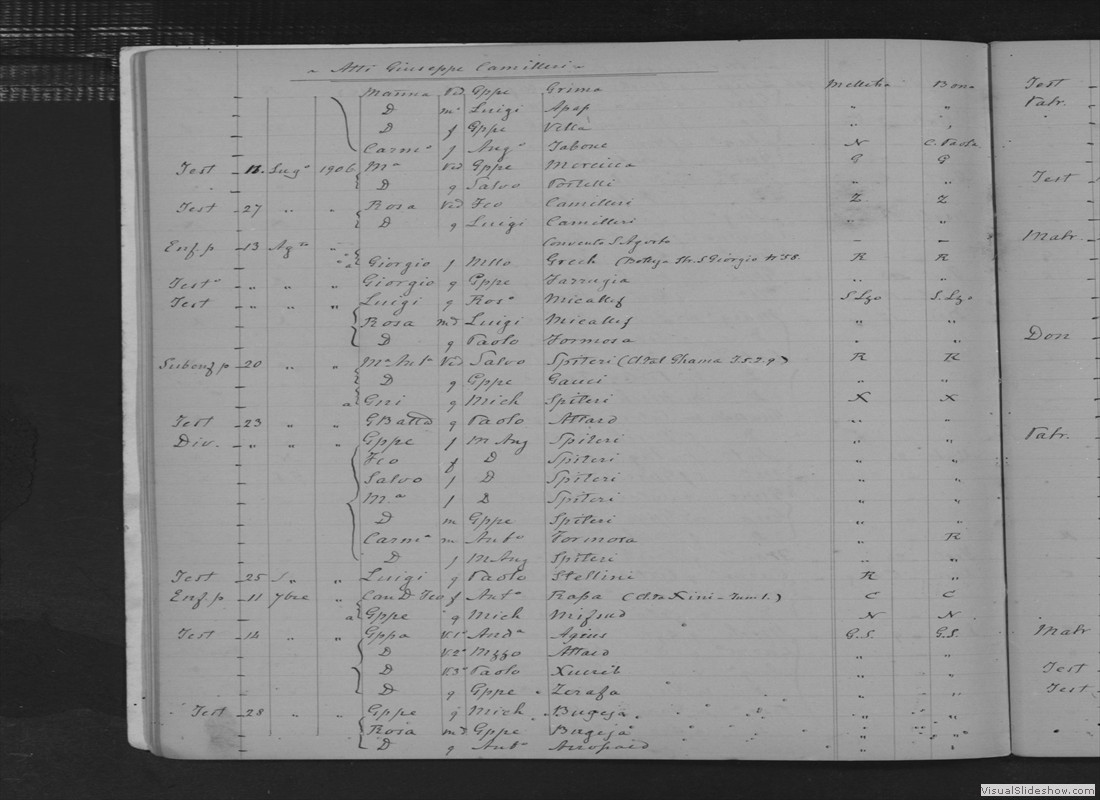 Atti Giuseppe Camilleri
Marina Ved Gppe Grima Mellieha Bona
D mᵉ Luigi Apap " "
D f Gppe Vella " "
Carmᵃ f Angᵒ Tabone N C. Paola
Test 11. Lugᵒ 1906 Mᵃ Ved Gppe Mercieca G G
D g Salvo Portelli " "
Test 27 " " Rosa Ved Fco Camilleri Z Z
D g Luigi Camilleri " "
Enf.p 13 Agᵗᵒ " Convento S. Agosto – –
a Giorgio f Nello Grech (Botteg. Str. S. Giorgio Nº 58 R R
Testᵒ " " " Giorgio g Gppe Farrugia " "
Test " " " Luigi g Rosᵒ Micallef S. Lzo S. Lzo
Rosa md Luigi Micallef " "
D g Paolo Formosa " "
Subenf p 20 " " Mᵃ Antᵃ Ved Salvo Spiteri ( R R
D g Gppe Gauci " "
a Gni g Mich Spiteri X X
Test 23 " " GBatta g Paolo Attard " "
Div. " " " Gppe f M Ang Spiteri " "
Fco f D Spiteri " "
Salvo f D Spiteri " "
M.ᵃ f D Spiteri " "
D m Gppe Spiteri " "
Carmᵃ m Antᵒ Formosa " R
D f M Ang Spiteri " "
Test 25 " " Luigi g Paolo Stellini R "
Enf.p 11 7bre " Can D. Fco f Antᵒ Rapa C C
a Gppe g Mich Mifsud N N
Test 14 " " Gppa V.1ᵒ Andᵃ Agius G.S. G.S.
D V.2ᵒ Nzzo Attard " "
D V.3ᵒ Paolo Xuereb " "
D g Gppe Zerafa " "
Test 28 " " Gppe g Mich Bugeja " "
Rosa md Gppe Bugeja " "
D g Antᵒ " "
Test
Patr.
Test
Matr.
Don
Patr.
Matr
Test
Test
VisualSlideshow.com